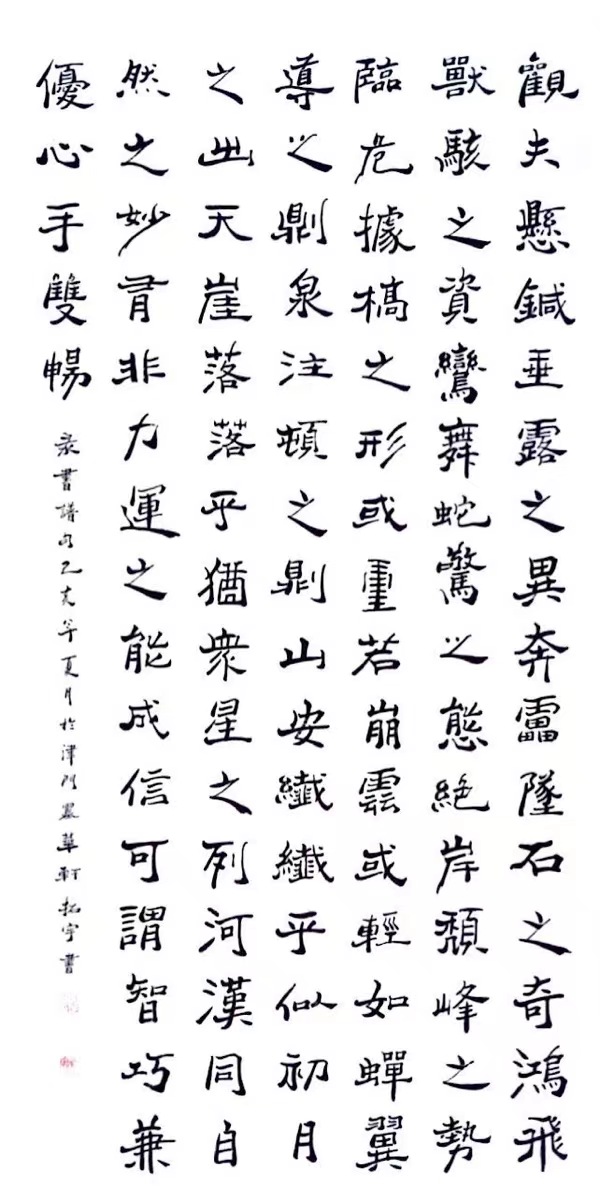 觀夫懸鍼垂露之異奔靁墜石之奇鴻飛
獸駭之資鸞舞蛇驚之態絕岸頹峰之勢
臨危據槁之形或重若崩雲或輕如蟬翼
導之則泉注頓之則山安纖纖乎似初月
之出天崖落落乎猶衆星之列河漢同自
然之妙有非力運之能成信可謂智巧兼
優心手雙暢
書譜句乙亥年夏月於津門華軒拓宇書